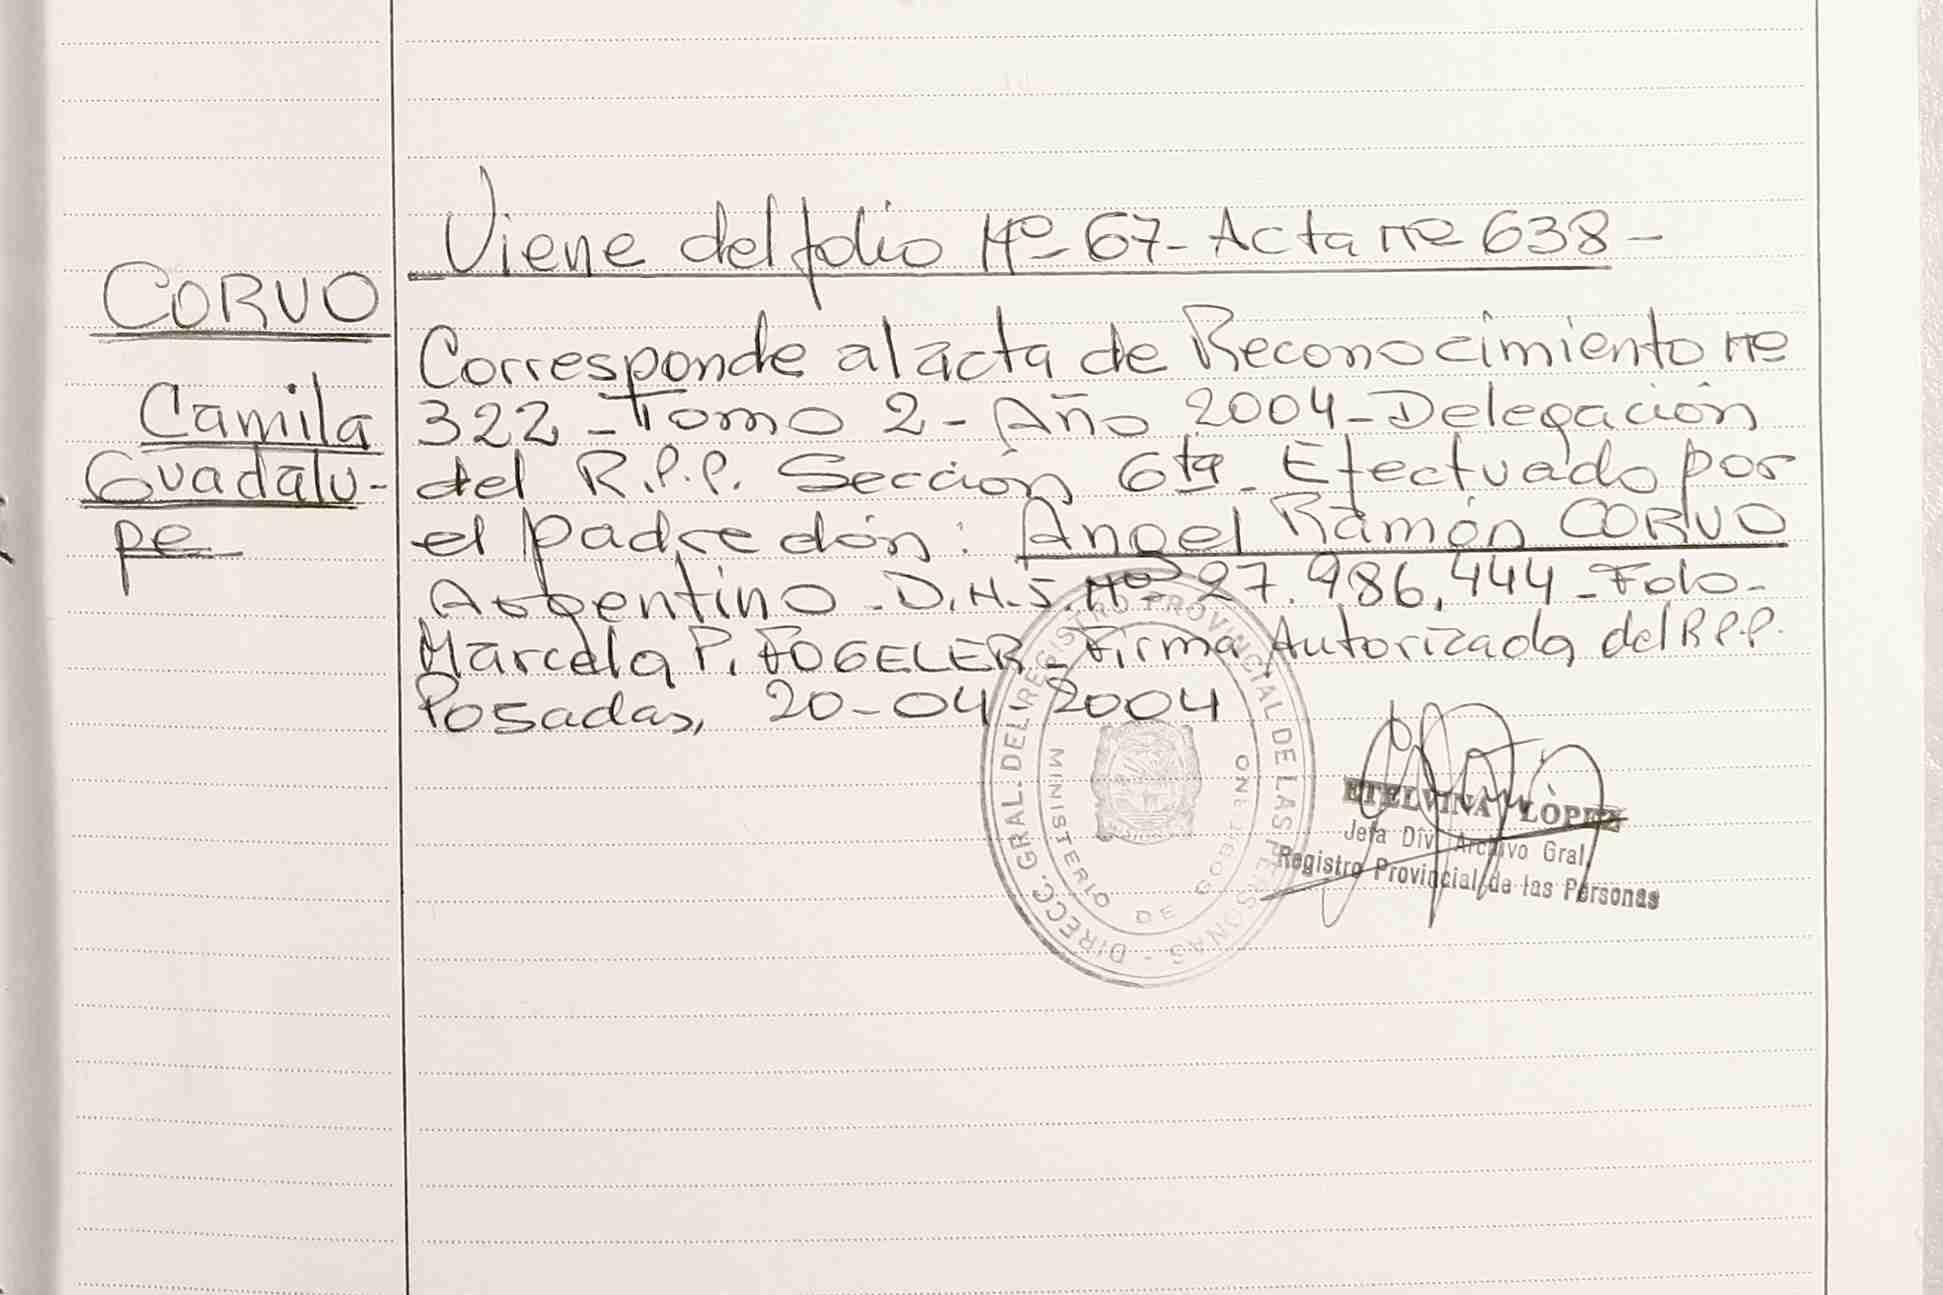 CORVO
Camila
Guadalu-
pe
Viene del folio Nº 67- Acta nº 638-
Corresponde al acta de Reconocimiento nº
322-Tomo 2- Año 2004-Delegación
del R.P.P. Sección 6ta- Efectuado por
el padre dón: Angel Ramón CORVO
Argentino-D.N.I. Nº 27.986,444-Fdo-
Marcela P. FOGELER-Firma Autorizada del R.P.P.
Posadas, 20-04-2004
DIRECC. GRAL. DEL REGISTRO PROVINCIAL DE LAS PERSONAS -
MINISTERIO DE GOBIERNO
ETELVINA LÒPEZ
Jefa Div. Archivo Gral.
Registro Provincial de las Personas